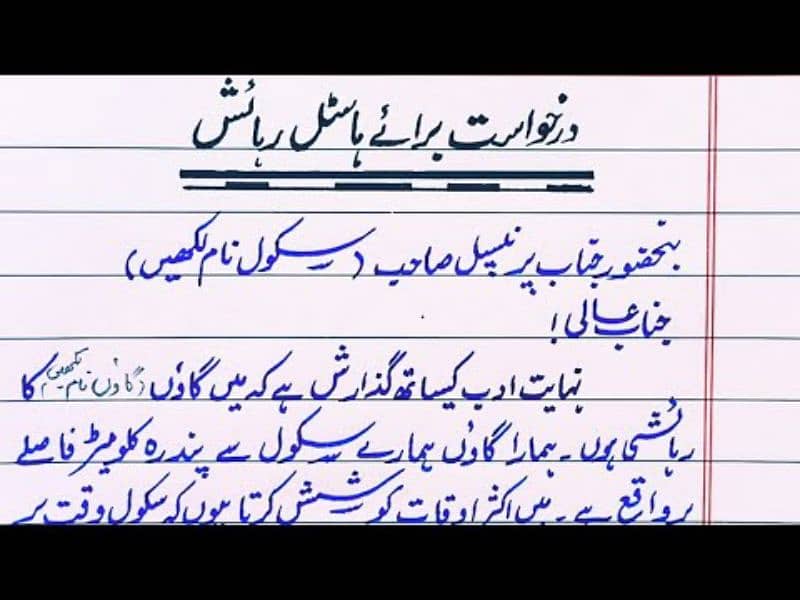 درخواست برائے ہاسٹل رہائش
بحضور جناب پرنسپل صاحب (سکول نام لکھیں)
جناب عالی!
نہایت ادب کیساتھ گذارش ہے کہ میں گاؤں (گاؤں نام لکھیں) کا
رہائشی ہوں۔ ہمارا گاؤں ہمارے سکول سے پندرہ کلومیٹر فاصلے
پر واقع ہے۔ میں اکثر اوقات کوشش کرتا ہوں کہ سکول وقت پر